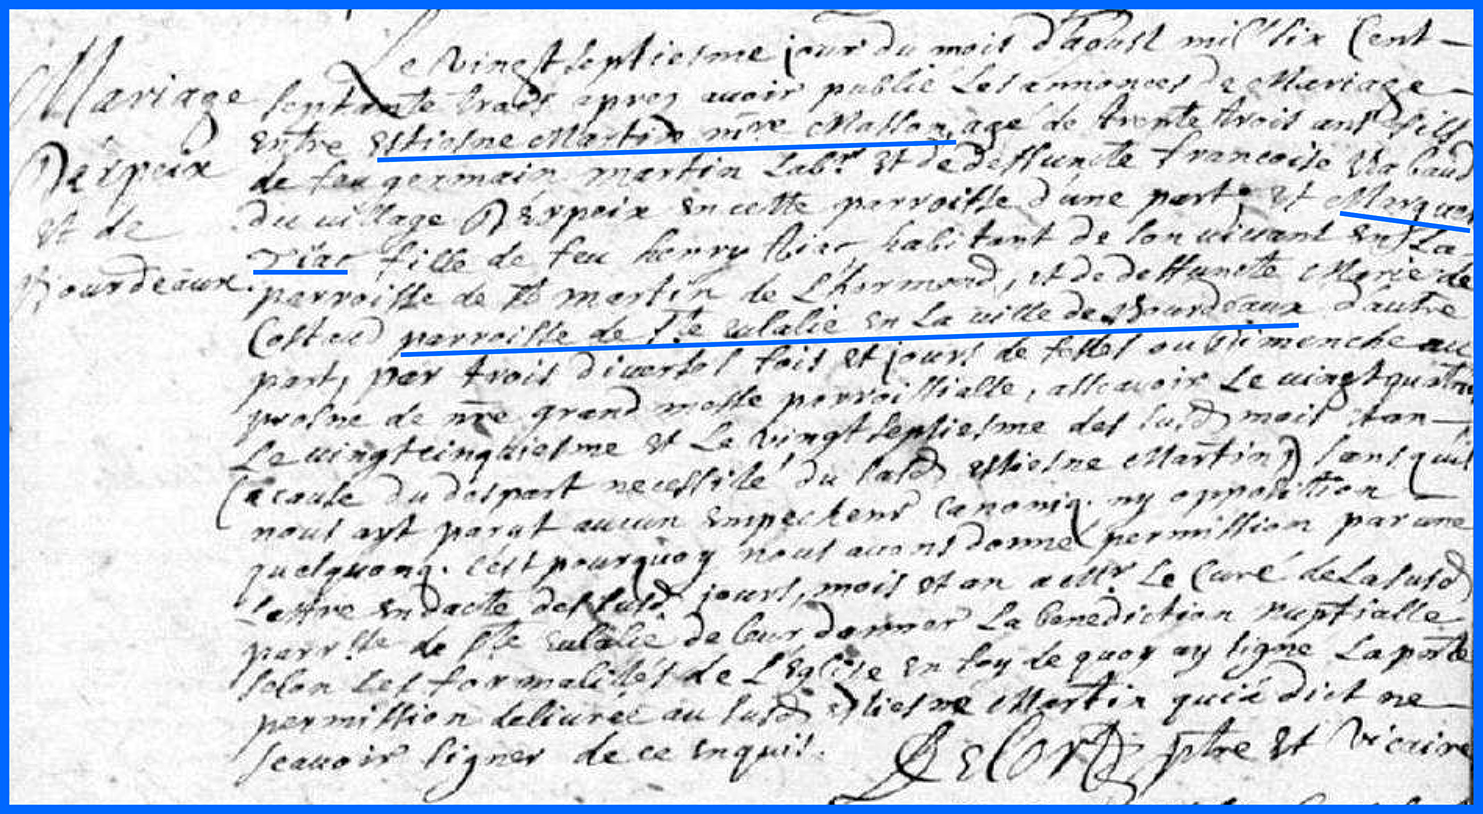 Mariage
Despoix
et de
Bourdeaux.
Le vingtseptiesme jour du mois d'aoust mil six Cent
septante trois apres avoir publié Les annonces de Mariage
Entre Estiesne Martin mre Masson, agé de trente trois ans fils
de feu germain martin Labr et de deffuncte francoise
du village Despoix En cette parroisse d'une part et
fille de feu henry habitant de son vivant En La
parroisse de St martin de et de deffuncte Marie de
parroisse de Ste Eulalie En La ville de Bourdeaux d'autre
part, par trois diverses fois et jours de festes ou dimenche au
prosne de nre grand messe parroissialle, assavoir Le vingtquatre
Le vingtcinquiesme et Le vingtseptiesme des susd mois et an
(a cause du despart necessité du susd Estiesne Martin) sans quil
nous ayt parut aucun Empechent Canoniq. ny opposition
quelquonq. C'est pourquoy nous avons donné permission par une
Lettre En dacte des susd jours, mois et an a Mr Le Curé de La susd
parrsse de Ste Eulalie de leur donner La benediction Nuptialle
selon Les formalités de L'Eglise En foy de quoy ay signe La pnte
permission delivree au susd Estiesne Martin qui a dict ne
scavoir signer de ce Enquis.
Delort ptre Et Vicaire